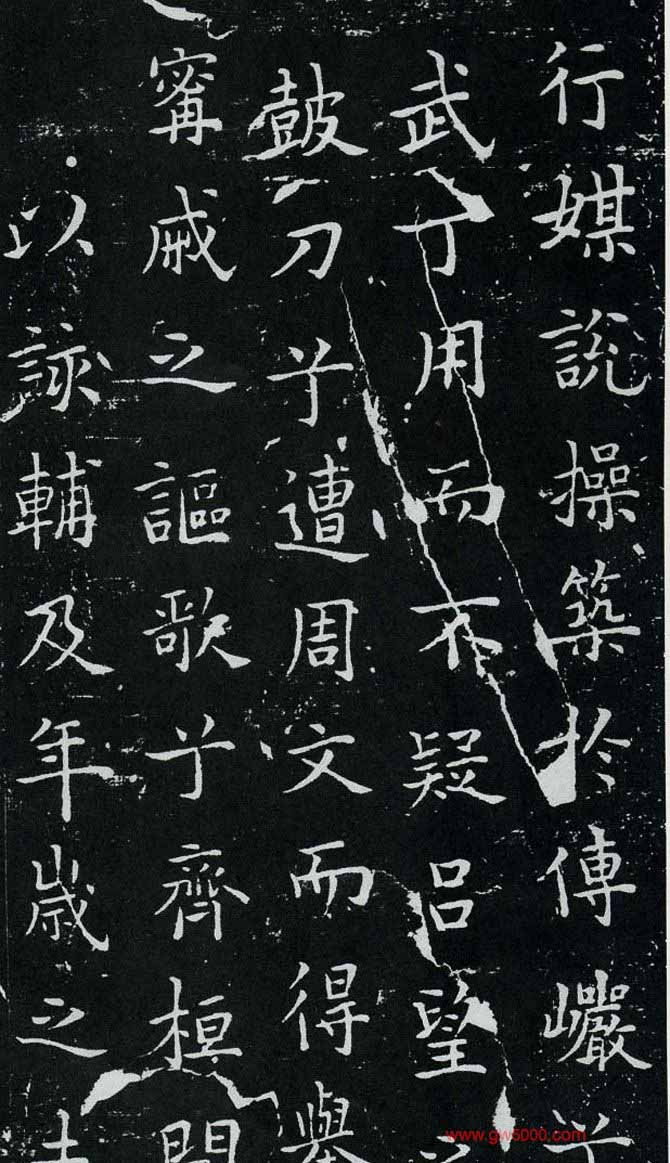 行媒說操築於傅巖
武丁用而不疑呂望
皷刀兮遭周文而得舉
寗戚之謳歌兮齊桓聞
以該輔及年歲之
www.gw5000.com